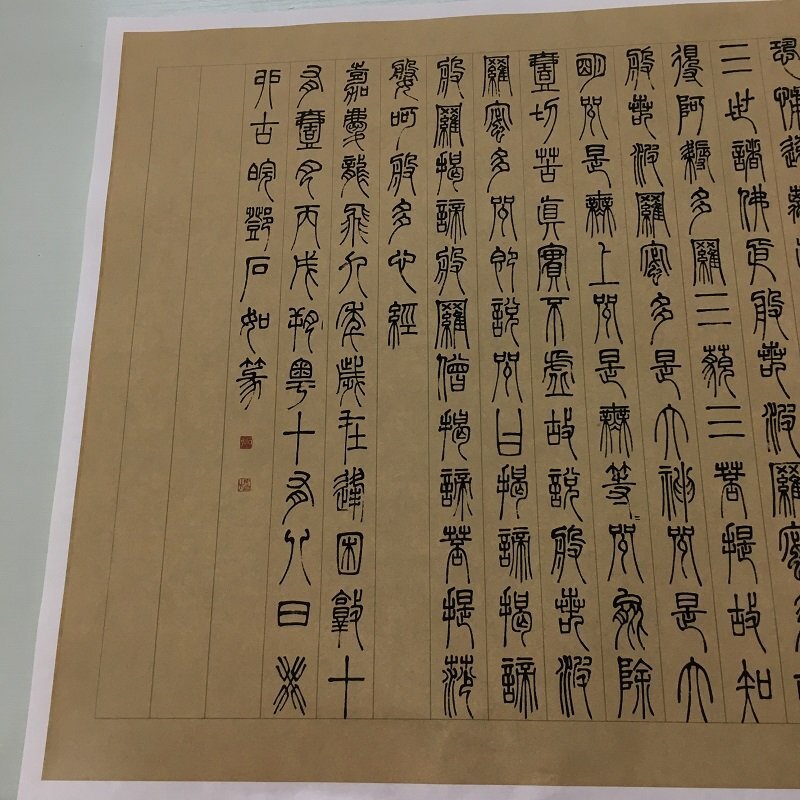 恐怖遠離
三世諸佛依般若波羅蜜多
得阿耨多羅三藐三菩提故知
般若波羅蜜多是大神咒是大
明咒是無上咒是無等=咒能除
壹切苦真實不虛故說般若波
羅蜜多咒即說咒曰揭諦揭諦
般羅揭諦般羅僧揭諦菩提莎
婆呵般多心經
嘉慶龍飛九年歲在逢困敦十
有壹月丙戌朔粵十有八日癸
卯古皖鄧石如篆